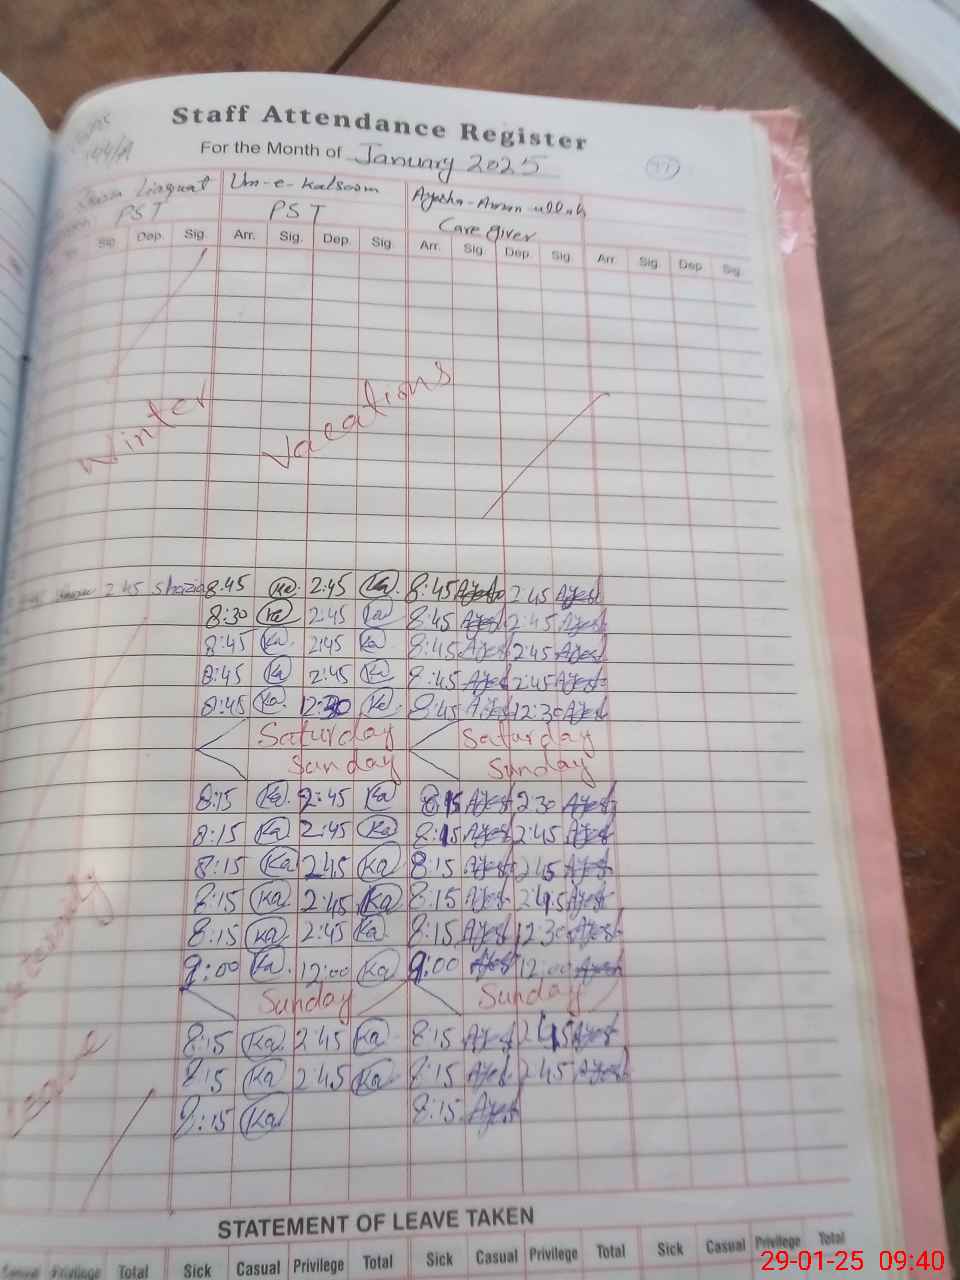 Staff Attendance Register
For the Month of January 2025 77
Liaquat Um-e-Kalsoom Ayesha-Aman-ullah
PST PST Care giver
Sig. Dep. Sig. Arr. Sig. Dep. Sig. Arr. Sig. Dep. Sig. Arr. Sig. Dep. Sig.
Winter Vacations
2:45 Shazia 8:45 Ka 2:45 Ka 8:45 Ayesh 2:45 Ayesh
8:30 Ka 2:45 Ka 8:45 Ayesh 2:45 Ayesh
8:45 Ka 2:45 Ka 8:45 Ayesh 2:45 Ayesh
8:45 Ka 2:45 Ka 8:45 Ayesh 2:45 Ayesh
8:45 Ka 12:30 Ka 8:45 Ayesh 12:30 Ayesh
Saturday Saturday
Sunday Sunday
8:15 Ka 2:45 Ka 8:15 Ayesh 2:30 Ayesh
8:15 Ka 2:45 Ka 8:15 Ayesh 2:45 Ayesh
8:15 Ka 2:45 Ka 8:15 Ayesh 2:45 Ayesh
8:15 Ka 2:45 Ka 8:15 Ayesh 2:45 Ayesh
8:15 Ka 2:45 Ka 8:15 Ayesh 12:30 Ayesh
9:00 Ka 12:00 Ka 9:00 Ayesh 12:00 Ayesh
Sunday Sunday
8:15 Ka 2:45 Ka 8:15 Ayesh 2:45 Ayesh
8:15 Ka 2:45 Ka 8:15 Ayesh 2:45 Ayesh
8:15 Ka 8:15 Ayesh
STATEMENT OF LEAVE TAKEN
Casual Privilege Total Sick Casual Privilege Total Sick Casual Privilege Total Sick Casual Privilege Total
29-01-25 09:40